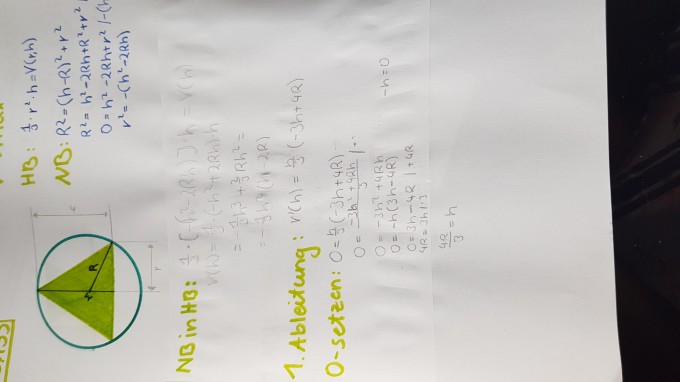 HB: 1/3 · r² · h = V(r,h)
NB: R² = (h-R)² + r²
R² = h² - 2Rh + R² + r²
0 = h² - 2Rh + r² | -(h
r² = -(h² - 2Rh)
r
R
NB in HB: 1/3 · [-(h² - 2Rh)] · h = V(h)
V(h) = 1/3 · (-h² + 2Rh) · h
= -1/3 h³ + 2/3 Rh² =
1. Ableitung: V'(h) = h/3 (-3h + 4R)
0-setzen: 0 = h/3 (-3h + 4R)
0 = -3h² + 4Rh / 3 | · 3
0 = -3h² + 4Rh
0 = -h(3h - 4R) -h = 0
0 = 3h - 4R | +4R
4R = 3h | : 3
4R/3 = h